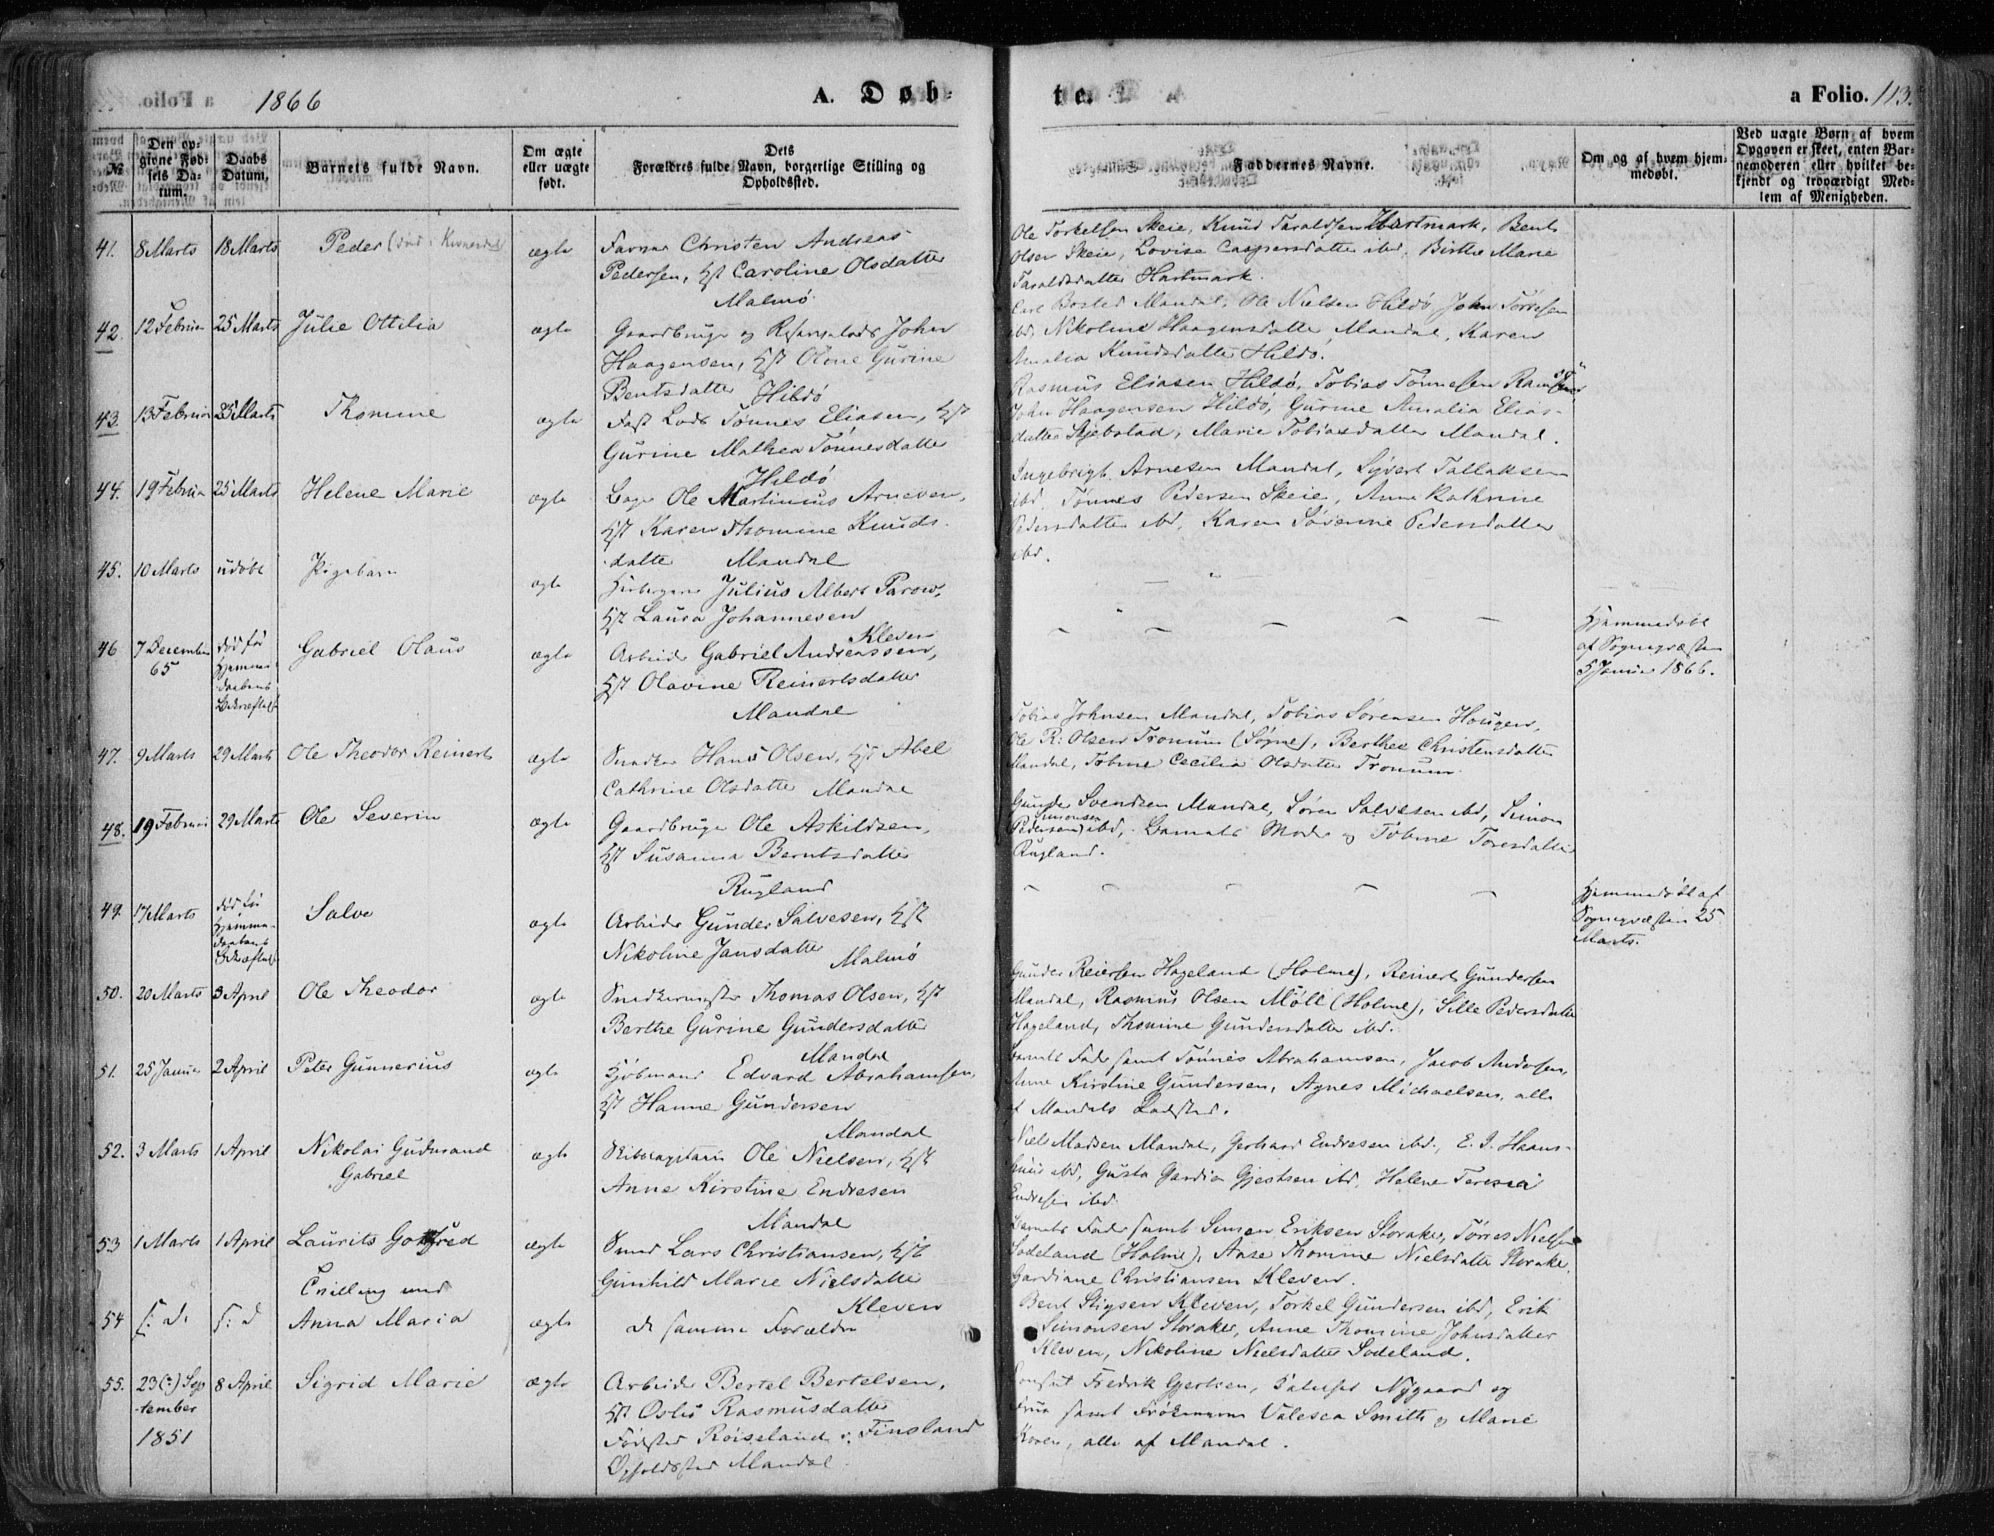 1866
A. Døb-
te.
a Folio. 113.
№
Den op-
givne Fød-
sels Da-
tum.
Daabs
Datum,
Barnets fulde Navn.
Om ægte
eller uægte
født.
Dets
Forældres fulde Navn, borgerlige Stilling og
Opholdssted.
Faddernes Navne.
Om og af hvem hjem-
medøbt.
Ved uægte Børn af hvem
Opgaven er skeet, enten Bar-
nemoderen eller hvilket be-
kjendt og troværdigt Med-
lem af Menigheden.
41. 8 Marts 18 Marts Peder ægte
Farver Christen Andreas
Pedersen, Hst Caroline Olsdatter
Malmø
Ole Torkelsen Skeie, Knud Taraldsen Hartmark, Bent
Olsen Skeie, Lovise Caspersdatter ibd, Birthe Marie
Taraldsdatter Hartmark.
42. 12 Februar 25 Marts Julie Ottilia ægte
Gaardbruger og John
Haagensen, Hst Olene Gurine
Bentsdatter Hildø
Mandal, Ole Nielsen Hildø, John Tørresen
ibd, Nikoline Haagensdatter Mandal, Karen
Amalia Knudsdatter Hildø.
43. 13 Februar 25 Marts Thomine ægte
Fast Lods Tønnes Eliasen, Hst
Gurine Mathea Tønnesdatter
Hildø
Rasmus Eliasen Hildø, Tobias Tønnesen
John Haagensen Hildø, Gurine Amalia Elias-
datter Skjebstad, Marie Tobiasdatter Mandal.
44. 19 Februar 25 Marts Helene Marie ægte
Ole Martinius Arnesen,
Hst Karen Thomine Knuds-
datter Mandal
Ingebrigt Arnesen Mandal, Syvert Tallaksen
ibd, Tønnes Pedersen Skeie, Anne Kathrine
Pedersdatter ibd, Karen Sørenne Pedersdatter
ibd.
45. 10 Marts udøbt Pigebarn ægte
Julius Albert Parow,
Hst Laura Johannesen
Kleven
46 7 December
65
død før
Hjemme-
daabens
Bekræftelse
Gabriel Olaus ægte
Arbeider Gabriel Andreassen,
Hst Olavine Reinertsdatter
Mandal
Hjemmedøbt
af Sognepræsten
5 Januar 1866.
47. 9 Marts 29 Marts Ole Theodor Reinert ægte
Snedker Hans Olsen, Hst Abel
Cathrine Olsdatter Mandal
Tobias Johnsen Mandal, Tobias Sørensen Haugen,
Ole R: Olsen Tronum (Søgne), Berthe Christensdatter
Mandal, Tobine Cecilia Olsdatter Tronum.
48. 19 Februar 29 Marts Ole Severin ægte
Gaardbruger Ole Askildsen,
Hst Susanna Berntsdatter
Rugland
Gunder Svendsen Mandal, Søren Salvesen ibd, Simon
Simonsen
Pedersen) ibd, Barnets Moder og Tobine Toresdatter
Rugland.
49. 17 Marts
død før
Hjemme-
daabens
Bekræftelse
Salve ægte
Arbeider Gunder Salvesen, Hst
Nikoline Jansdatter
Malmø
Hjemmedøbt af
Sognepræsten 25
Marts.
50. 20 Marts 3 April Ole Theodor ægte
Snedkermester Thomas Olsen, Hst
Berthe Gurine Gundersdatter
Mandal
Gunder Reiersen Hageland (Holme), Reinert Gundersen
Mandal, Rasmus Olsen Møll (Holme), Sille Pedersdatter
Hageland, Thomine Gundersdatter ibd.
51. 25 Januar 2 April Peter Gunnerius ægte
Kjøbmand Edvard Abrahamsen,
Hst Hanne Gundersen
Mandal
Barnets Fader samt Tønnes Abrahamsen, Jacob Andersen,
Anne Kirstine Gundersen, Agnes Michaelsen, alle
af Mandals Ladsted.
52. 3 Marts 1 April Nikolai Gudmand
Gabriel
ægte
Skibscapitain Ole Nielsen, Hst
Anne Kirstine Endresen
Mandal
Niels Madsen Mandal, Gerhard Endresen ibd, E. I. Haans-
huus ibd, Gusta Gjertsen ibd, Helene Teresia
Endresen ibd.
53 1 Marts 1 April Laurits Gotfred
Tvilling med
ægte
Smed Lars Christiansen, Hst
Gunhild Marie Nielsdatter
Kleven
Barnets Fader samt Simon Eriksen Storaker, Tørres Nielsen
Sodeland (Holme), Aase Thomine Nielsdatter Storaker,
Gardiane Christiansen Kleven.
54 s: d. s: d Anna Maria ægte
de samme Forældre
Bent Stigsen Kleven, Torkel Gundersen ibd, Erik
Simonsen Storaker, Anne Thomine Johnsdatter
Kleven, Nikoline Nielsdatter Sodeland.
55. 23(?) Sep
tember
1851
8 April Sigrid Marie ægte
Arbeider Bertel Bertelsen,
Hst Oslo Rasmusdatter
Fødested Røiseland i Finsland
Opholdssted Mandal.
Consul Fredrik Gjertsen, Nygaard og
Frue samt Frøknerne Valesca Smith og Marie
Koren, alle af Mandal.